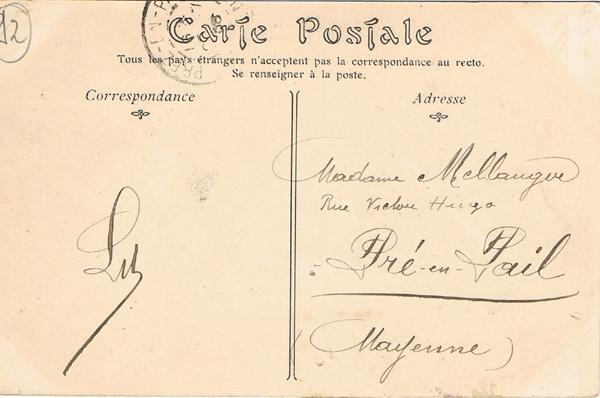 92
Carte Postale
Tous les pays étrangers n'acceptent pas la correspondance au recto.
Se renseigner à la poste.
Correspondance
Adresse
Madame
Rue Victor Hugo
Pré-en-Pail
(Mayenne)